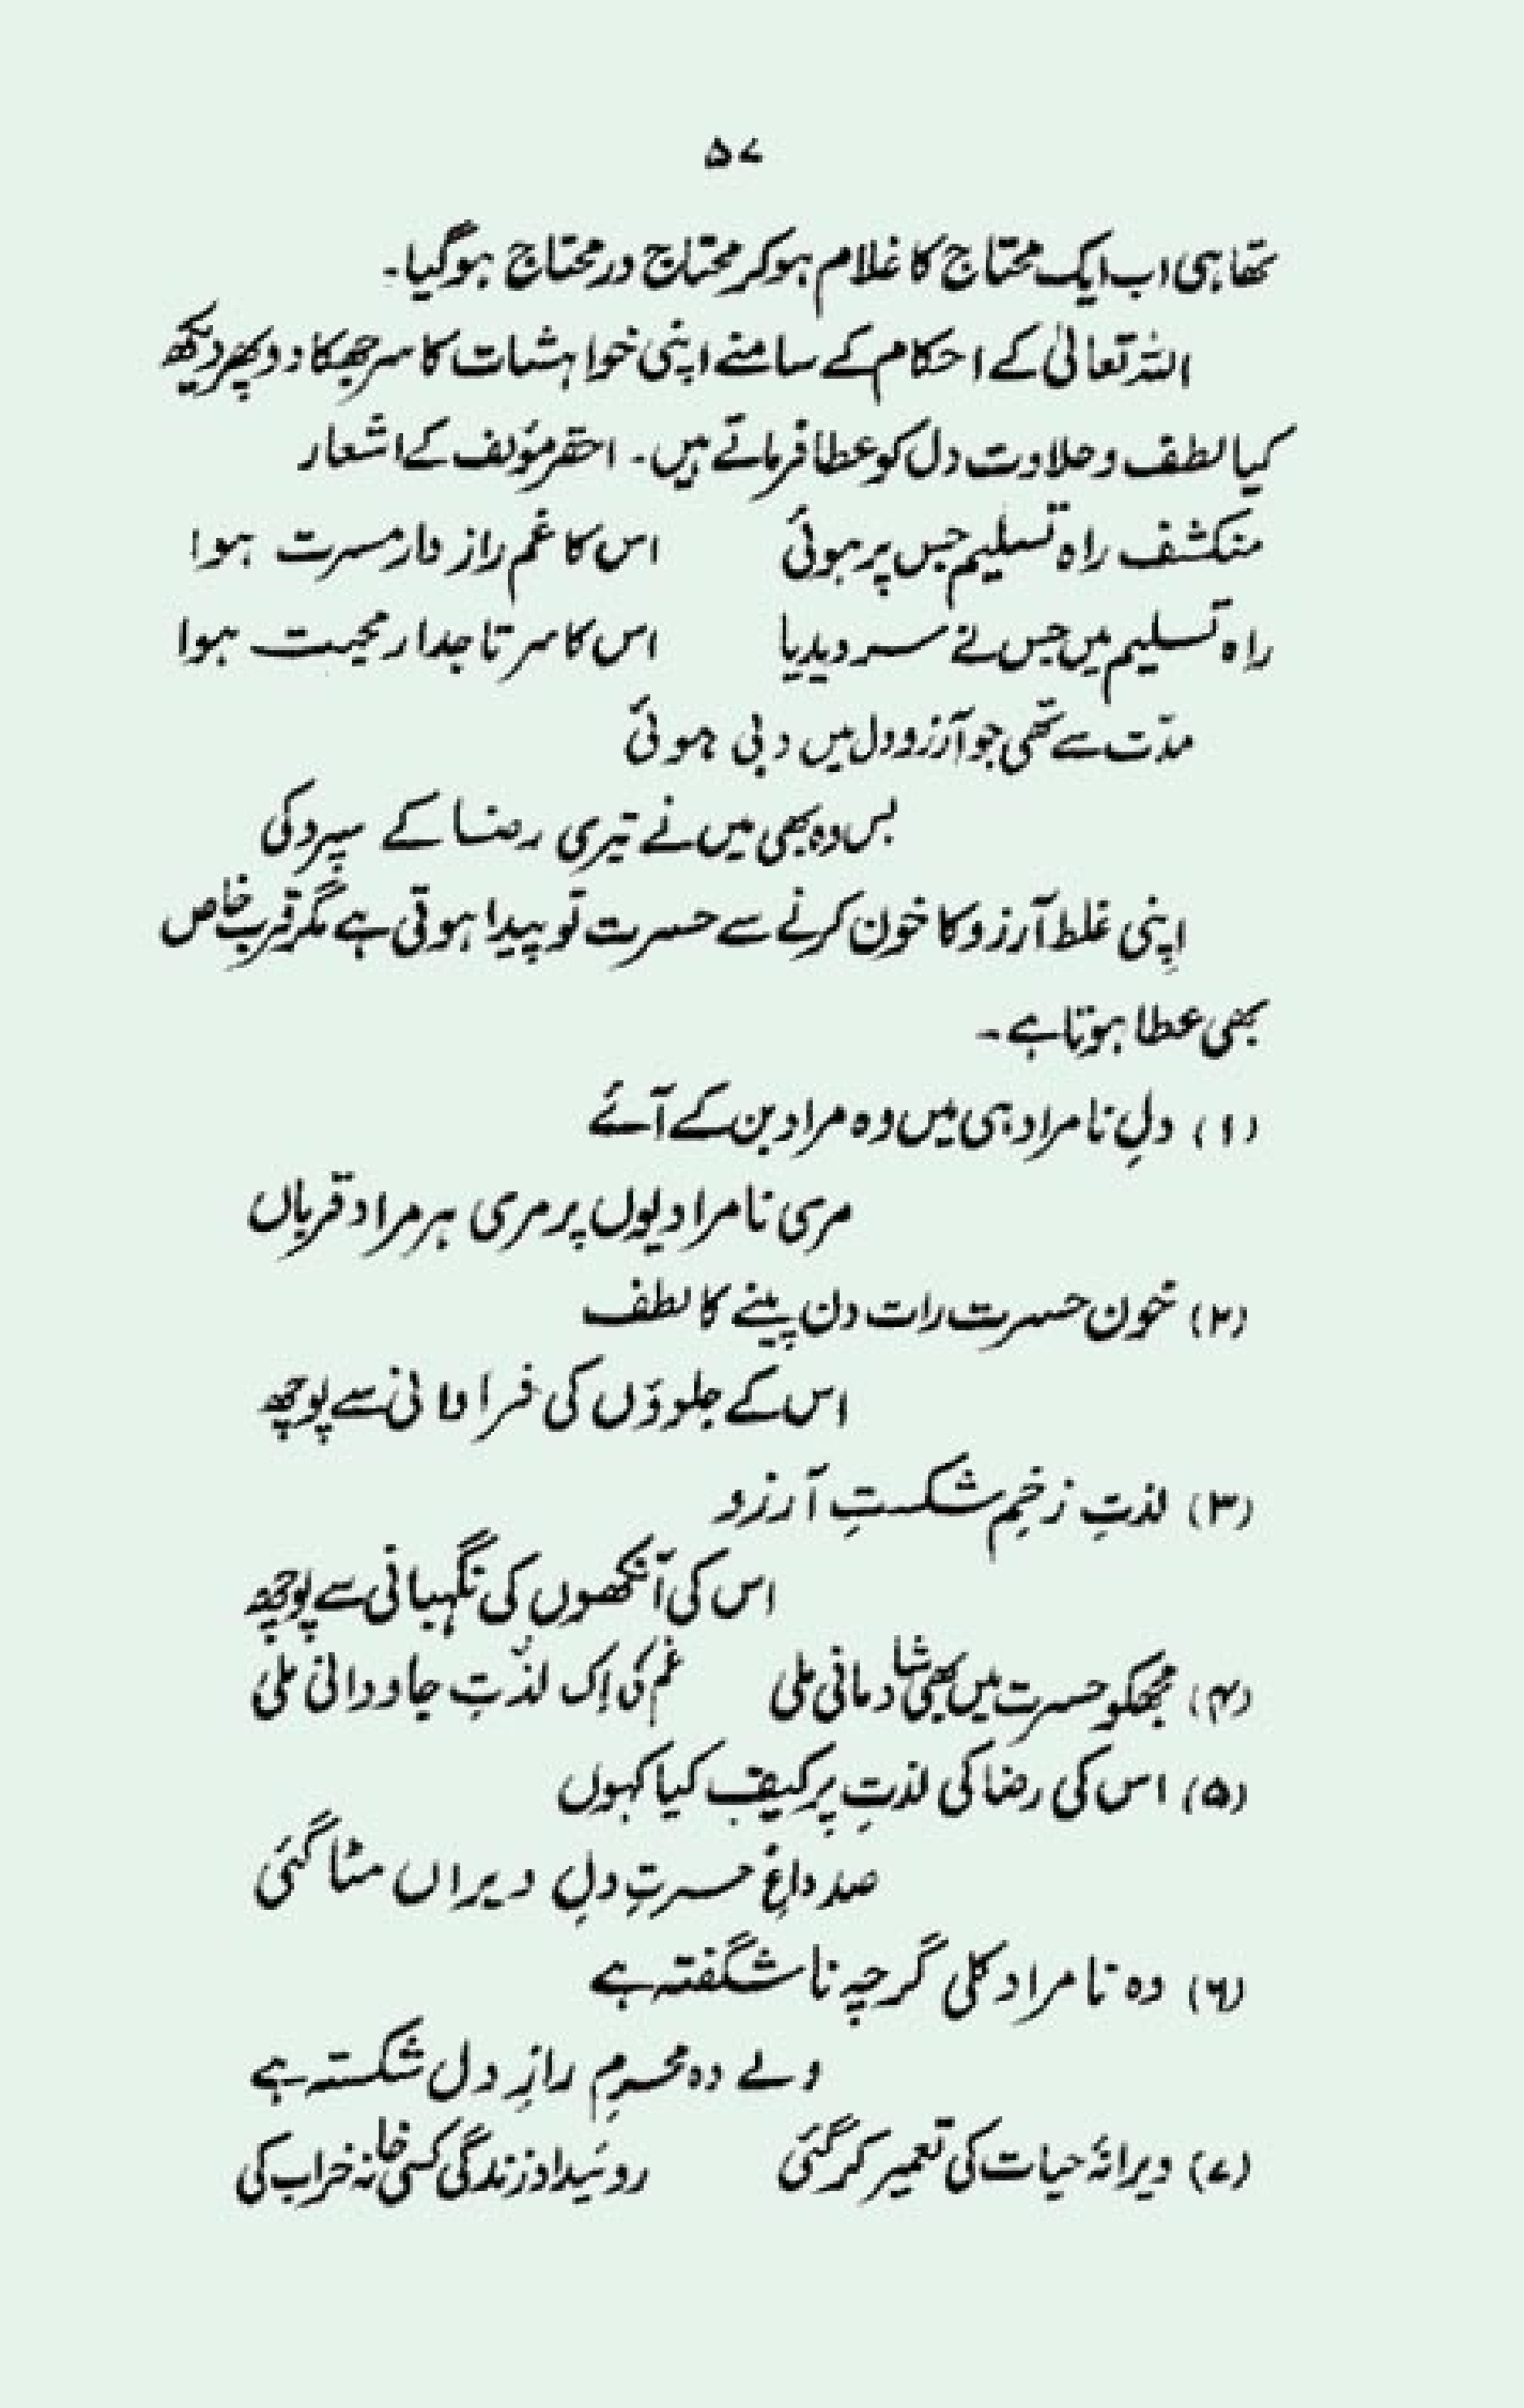 ۵۷
تھا ہی اب ایک محتاج کا غلام ہوکر محتاج در محتاج ہوگیا۔
اللہ تعالیٰ کے احکام کے سامنے اپنی خواہشات کا سر جھکا دو پھر دیکھ
کیا لطف و حلاوت دل کو عطا فرماتے ہیں۔ احقر مؤلف کے اشعار
منکشف راہ تسلیم جس پر ہوئی اس کا غم راز دار مسرت ہوا
راہ تسلیم میں جس نے سر دیدیا اس کا سر تاجدار محبت ہوا
مدّت سے تھی جو آرزو دل میں دبی ہوئی
بس وہ بھی میں نے تیری رضا کے سپرد کی
اپنی غلط آرزو کا خون کرنے سے حسرت تو پیدا ہوتی ہے مگر قرب خاص
بھی عطا ہوتا ہے۔
(۱) دلِ نامراد ہی میں وہ مراد بن کے آئے
مری نامرادیوں پر مری ہر مراد قرباں
(۲) خون حسرت رات دن پینے کا لطف
اس کے جلوؤں کی فراوانی سے پوچھ
(۳) لذتِ زخمِ شکستِ آرزو
اس کی آنکھوں کی نگہبانی سے پوچھ
(۴) مجھکو حسرت میں بھی شادمانی ملی غم کی اِک لذّتِ جاودانی ملی
(۵) اس کی رضا کی لذتِ پرکیف کیا کہوں
صد داغِ حسرتِ دلِ ویراں مٹا گئی
(۶) وہ نامراد کلی گرچہ ناشگفتہ ہے
ولے وہ محرمِ رازِ دل شکستہ ہے
(۷) ویرانۂ حیات کی تعمیر کر گئی روئیداد زندگی کسی خانہ خراب کی